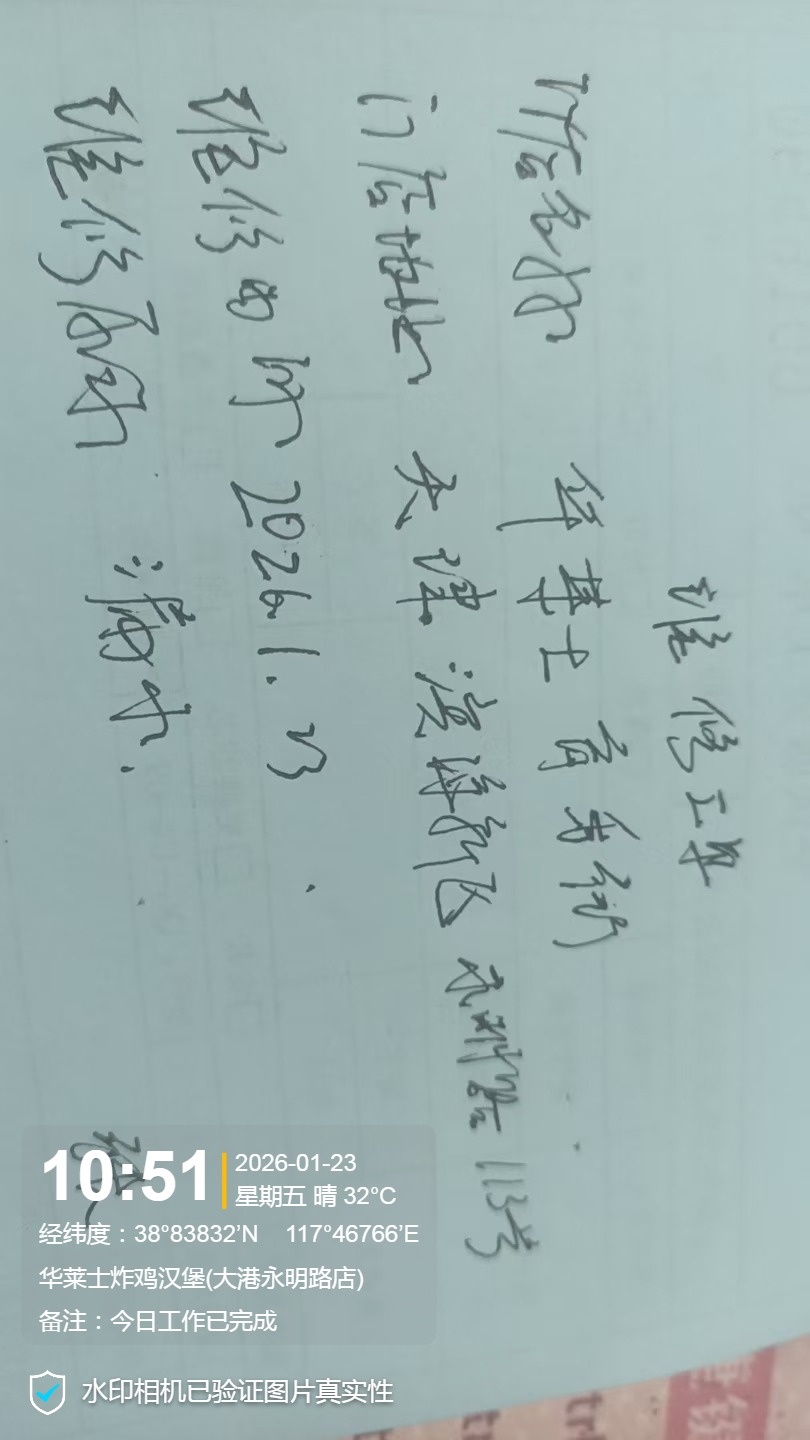 维修工单
门店名称 华莱士 育秀街
门店地址 天津滨海新区永明路113号
维修日期 2026.1.23
维修原因 漏水.
10:51
2026-01-23
星期五 晴 32°C
经纬度：38°83832’N 117°46766’E
华莱士炸鸡汉堡(大港永明路店)
备注：今日工作已完成
水印相机已验证图片真实性